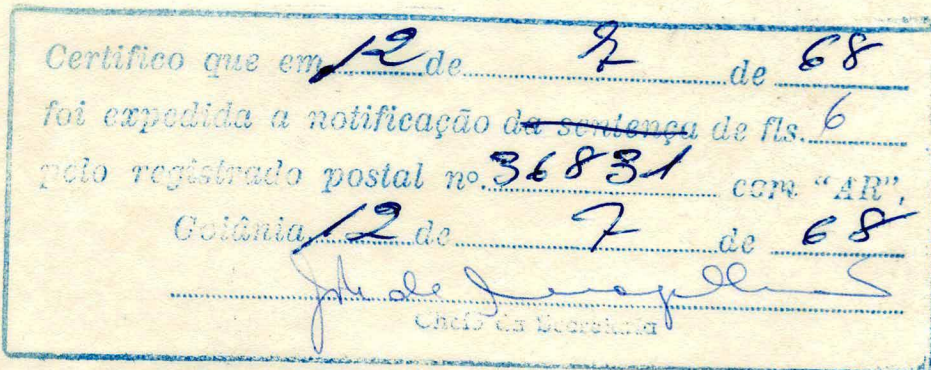 Certifico que em 12 de 7 de 68
foi expedida a notificação da sentença de fls. 6
pelo registrado postal nº 36831 com "AR".
Goiânia, 12 de 7 de 68
Chefe da Secretaria